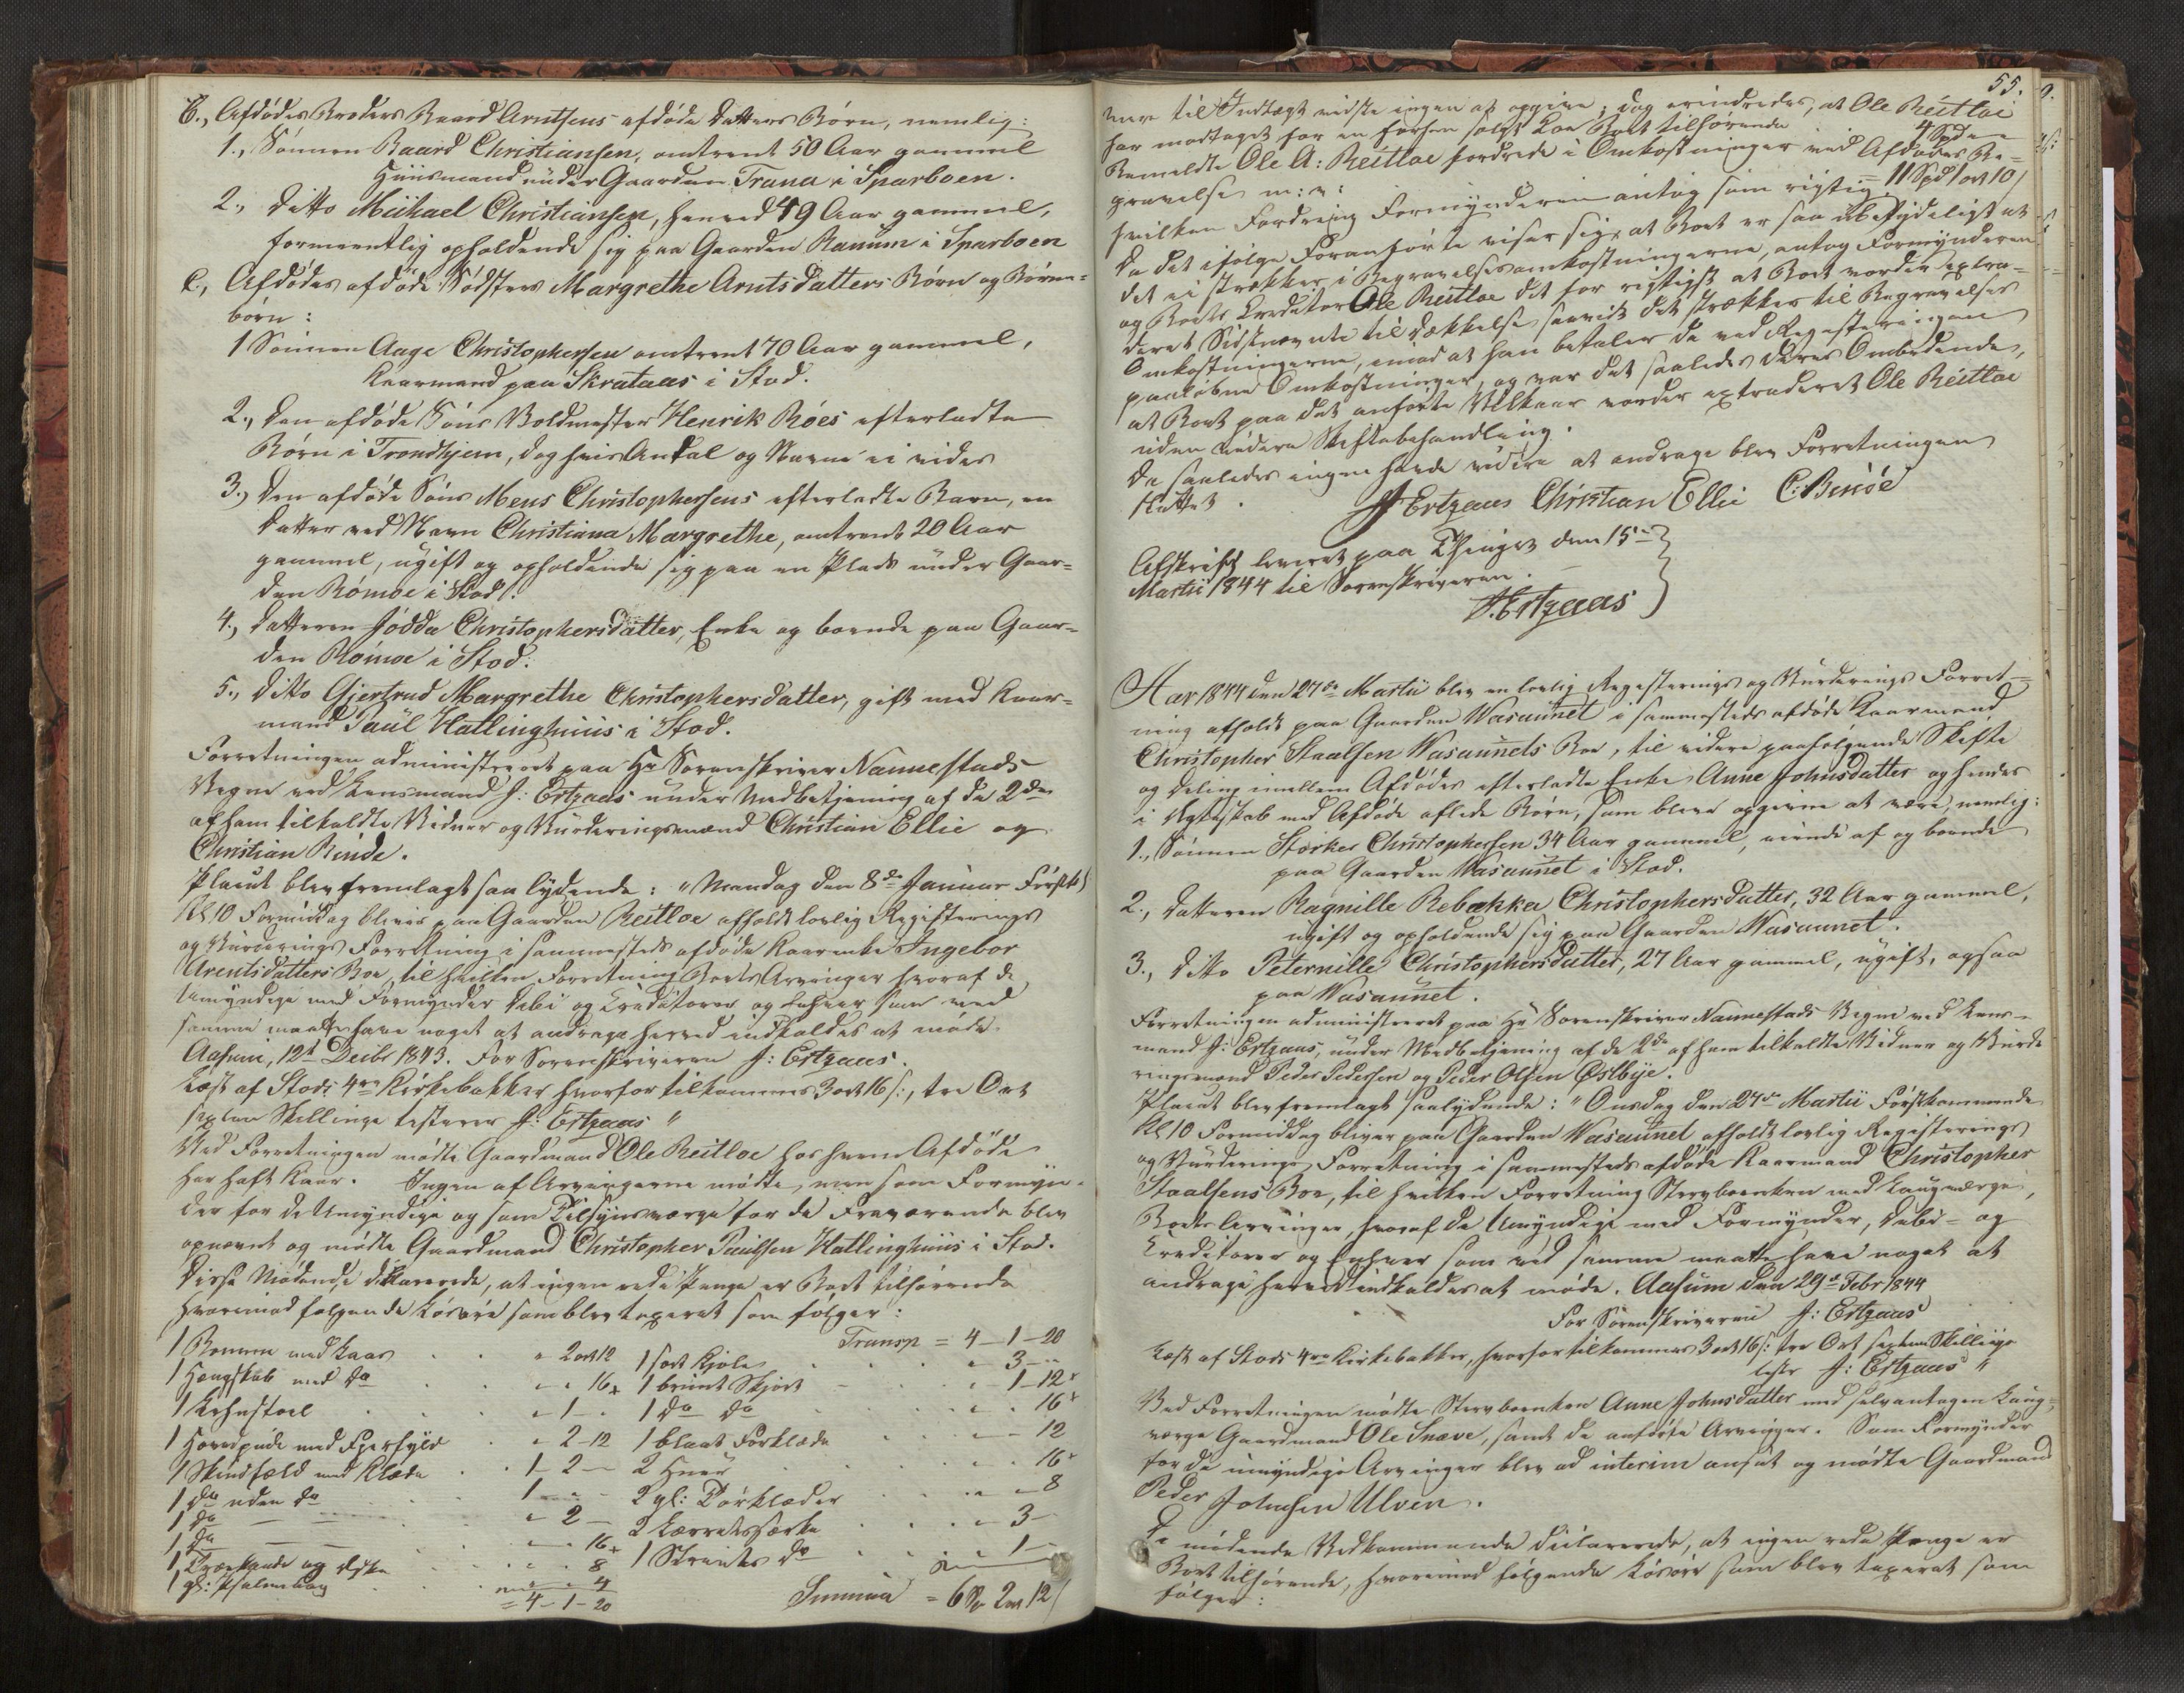 B., Afdødes Broders Baard Arntsens afdøde Datters Børn, nemlig:
1., Sønnen Baard Christiansen, omtrent 50 Aar gammel
Huusmand under Gaarden Trana i Sparboen.
2., Ditto Mikael Christiansen, henved 49 Aar gammel,
formeentlig opholdende sig paa Gaarden Ranum i Sparboen
C., Afdødes afdøde Södsters Margrethe Arntsdatters Børn og Børne-
børn:
1 Sønnen Aage Christophersen omtrent 70 Aar gammel,
Kaarmand paa Skrataas i Stod.
2., Den afdøde Søns Boldmester Henrik Róes efterladte
Børn i Trondhjem, dog hvis Antal og Navne ei vides
3., Den afdøde Søns Mens Christophersens efterladte Barn, en
Datter ved Navn Christiana Margrethe, omtrent 20 Aar
gammel, ugift og opholdende sig paa en Plads under Gaar-
den Rómoe i Stod.
4., Datteren Jödda Christophersdatter, Enke og boende paa Gaar-
den Rómoe i Stod.
5., Ditto Gjertrud Margrethe Christophersdatter, gift med Kaar-
mand Paul Hatlinghuus i Stod.
Forretningen administreret paa Hr Sorenskriver Nannestads
Vegne ved Lensmand J: Ertzaas under Medbetjening af de 2de
af ham tilkaldte Vidner og Vurderingsmænd Christian Ellie og
Christian Binde.
Placat blev fremlagt saa lydende: "Mandag den 8de Januar Førstk:
Kl 10 Formiddag bliver paa Gaarden Reitloe afholdt lovlig Registrerings
og Vurderings Forretning i sammesteds afdøde Kaarenke Ingebor
Arentsdatters Boe, til hvilken Forretning Boets Arvinger hvoraf de
Umyndige med Formynder Debi og Creditorer og Enhver som ved
samme maatte have noget at andrage herved indkaldes at møde.
Aasum, 12te Decbr 1843. For Sorenskriveren J: Ertzaas.
Læst af Stods 4re Kirkebakker hvorfor tilkommer 3 ort 16 s:, tre Ort
sexten Skillinge testerer J: Ertzaas"
Ved Forretningen mødte Gaardmand Ole Reitloe hos hvem Afdøde
har haft Kaar. Ingen af Arvingerne mødte, men som Formyn-
der for de Umyndige og som Tilsynsværge for de Fraværende blev
opnævnt og mødte Gaardmand Christopher Paulsen Hatlinghuus i Stod.
Disse Mødende deklarerede, at ingen rede Penge er Boet tilhørende
hvorimod følgende Løsøre som blev taxeret som følger:
1 Bomme med Laas " 2 ort 12
1 Hængskab med do " " 16
1 Lehnstoel " 1 "
1 Hovedpude med Fjerfyld " 2 - 12
1 Skindfæld med Klæde 1 - 2 -
1 do uden do 1 - " -
1 do " 2 -
1 do " " 16
1 Trækande og Æske " " 8
1 gl: Psalmebog " " 4
= 4 - 1 - 20
Transp = 4 - 1 - 20
1 sort Kjole " 3 - "
1 bruunt Skjørt " 1 - 12
1 do do " " 16
1 blaat Forklæde " " 12
2 Huer " " 16
2 gl: Tørklæder " " 8
2 Lærretssærke " 3 -
1 Strie do " 1 -
Summa = 6 Sp 2 ort 12 s
55.
mere til Indtægt vidste ingen at opgive; dog erindredes, at Ole Reitloe
har modtaget for en forhen solgt Koe Boet tilhørende 4 Spd " "
Bemeldte Ole A: Reitloe fordrede i Omkostninger ved Afdødes Be-
gravelse m: v: 11 Spd 1 ort 10 s
hvilken Fordring Formynderen antog som rigtig.
Da det ifølge Foranførte viser sig, at Boet er saa ubetydeligt at
det ei strækker i Begravelsesomkostningerne, antog Formynderen
og Boets Creditor Ole Reitloe det for rigtigst at Boet vorder extra-
deret Sidstnævnte til Dækkelse saavidt det strækker til Begravelses
Omkostningerne, imod at han betaler de ved Registreringen
paaløbne Omkostninger, og var det saaledes deres Ombedende,
at Boet paa det anførte Vilkaar vorder extraderet Ole Reitloe
uden videre Skiftebehandling.
Da saaledes ingen havde videre at andrage blev Forretningen
sluttet.
J Ertzaas Christian Ellie C: Binde
Afskrift leveret paa Thinget den 15de
Martii 1844 til Sorenskriveren.
J. Ertzaas
Aar 1844 den 27de Martii blev en lovlig Registrerings og Vurderings Forret-
ning afholdt paa Gaarden Wasaunet i sammesteds afdøde Kaarmand
Christopher Staalsen Wasaunets Boe, til videre paafølgende Skifte
og Deling imellem Afdødes efterladte Enke Anne Johnsdatter og hendes
i Ægteskab med Afdøde avlede Børn, som blev opgivne at være, nemlig:
1., Sønnen Storker Christophersen 34 Aar gammel, eiende af og boende
paa Gaarden Wasaunet i Stod.
2., Datteren Ragnille Rebækka Christophersdatter, 32 Aar gammel,
ugift og opholdende sig paa Gaarden Wasaunet.
3., Ditto Peternille Christophersdatter, 27 Aar gammel, ugift, ogsaa
paa Wasaunet.
Forretningen administreret paa Hr Sorenskriver Nannestads Vegne ved Lens-
mand J: Ertzaas, under Medbetjening af de 2de af ham tilkaldte Vidner og Vurde
ringsmænd Peder Pedersen og Peder Olsen Østbye.
Placat blev fremlagt saalydende: "Onsdag den 27de Martii Førstkommende
Kl 10 Formiddag bliver paa Gaarden Wasaunet afholdt lovlig Registrerings
og Vurderings Forretning i sammesteds afdøde Kaarmand Christopher
Staalsens Boe, til hvilken Forretning Stervboenken med Laugværge,
Boets Arvinger, hvoraf de Umyndige med Formynder, Debi- og
Creditorer og Enhver som ved samme maatte have noget at
andrage herved indkaldes at møde. Aasum den 29de Febr 1844
For Sorenskriveren J: Ertzaas
Læst af Stods 4re Kirkebakker, hvorfor tilkommer 3 ort 16 s: tre Ort sexten Skillinge
tester J: Ertzaas"
Ved Forretningen mødte Stervboenken Anne Johnsdatter med selvantagen Laug-
værge Gaardmand Ole Snæve, samt de anførte Arvinger. Som Formynder
for de umyndige Arvinger blev ad interim ansat og mødte Gaardmand
Peder Johnsen Ulven.
De mødende Vedkommende declarerede, at ingen rede Penge er
Boet tilhørende, hvorimod følgende Løsøre som blev taxeret som
følger: